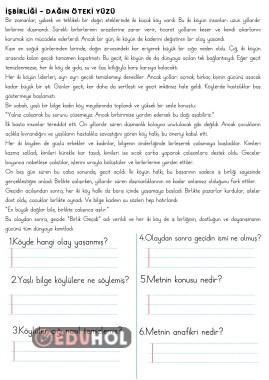 İŞBİRLİĞİ – DAĞIN ÖTEKİ YÜZÜ
Bir zamanlar, yüksek ve tehlikeli bir dağın eteklerinde iki küçük köy vardı. Bu iki köyün insanları uzun yıllardır
birbirine düşmandı. Sürekli birbirlerinin arazilerine zarar verir, ticaret yollarını keser ve kendi çıkarlarını
korumak için mücadele ederlerdi. Ancak bir gün, iki köyün de kaderini değiştiren bir olay yaşandı.
Kışın en soğuk günlerinden birinde, dağın zirvesindeki kar eriyerek büyük bir çığa neden oldu. Çığ, iki köyün
arasında kalan geçidi tamamen kapatmıştı. Bu geçit, iki köyün de dış dünyaya açılan tek bağlantısıydı. Eğer geçit
temizlenmezse, her iki köy de gıda, su ve ilaç kıtlığıyla karşı karşıya kalacaktı.
Her iki köyün liderleri, ayrı ayrı geçidi temizlemeyi denediler. Ancak yolları açmak, birkaç kişinin gücünü aşacak
kadar büyük bir işti. Günler geçti, kar daha da sertleşti ve geçit imkânsız hale geldi. Köylerde hastalıklar baş
göstermeye başlamıştı.
Bir sabah, yaşlı bir bilge kadın köy meydanında toplandı ve yüksek bir sesle konuştu:
"Yalnız çalışarak bu sorunu çözemeyiz. Ancak birbirimize yardım edersek bu dağı aşabiliriz."
İlk başta insanlar tereddüt etti. On yıllardır süren düşmanlık kolayca unutulacak gibi değildi. Ancak çocukların
açlıkla kıvrandığını ve yaşlıların hastalıkla savaştığını gören köy halkı, bu öneriyi kabul etti.
Her iki köyden de güçlü erkekler ve kadınlar, bilgenin önderliğinde birleşerek çalışmaya başladılar. Kimileri
kazma salladı, kimileri kürekle kar taşıdı, kimileri ise sıcak çorba yaparak çalışanlara destek oldu. Geceler
boyunca nöbetleşe çalıştılar, ellerini ısırarak balyozlara ve birbirlerine yardım ettiler.
On beş gün süren bu çaba sonunda, geçit açıldı. İki köyün halkı, bu başarının sadece iş birliği sayesinde
gerçekleştiğini anladı. Birlikte çalışırken, yıllardır süren düşmanlıklarının ne kadar anlamsız olduğunu fark ettiler.
Geçidin açılışından sonra, her iki köy halkı da barış içinde yaşamaya başladı. Birlikte pazarlar kurdular, aileler
dost oldu, çocuklar birlikte oynadı. Ve bilge kadının şu sözleri hep hatırlandı:
"En büyük dağlar bile, birlikte çalışınca aşılır."
Bu olaydan sonra, geçide "Birlik Geçidi" adı verildi ve her iki köy de iş birliğinin, dostluğun ve dayanışmanın
gücünü tüm dünyaya kanıtladı.
1.Köyde hangi olay yaşanmış?
2.Yaşlı bilge köylülere ne söylemiş?
EDUHOL
4.Olaydan sonra geçidin ismi ne olmuş?
5.Metnin konusu nedir?
6.Metnin anafikri nedir?